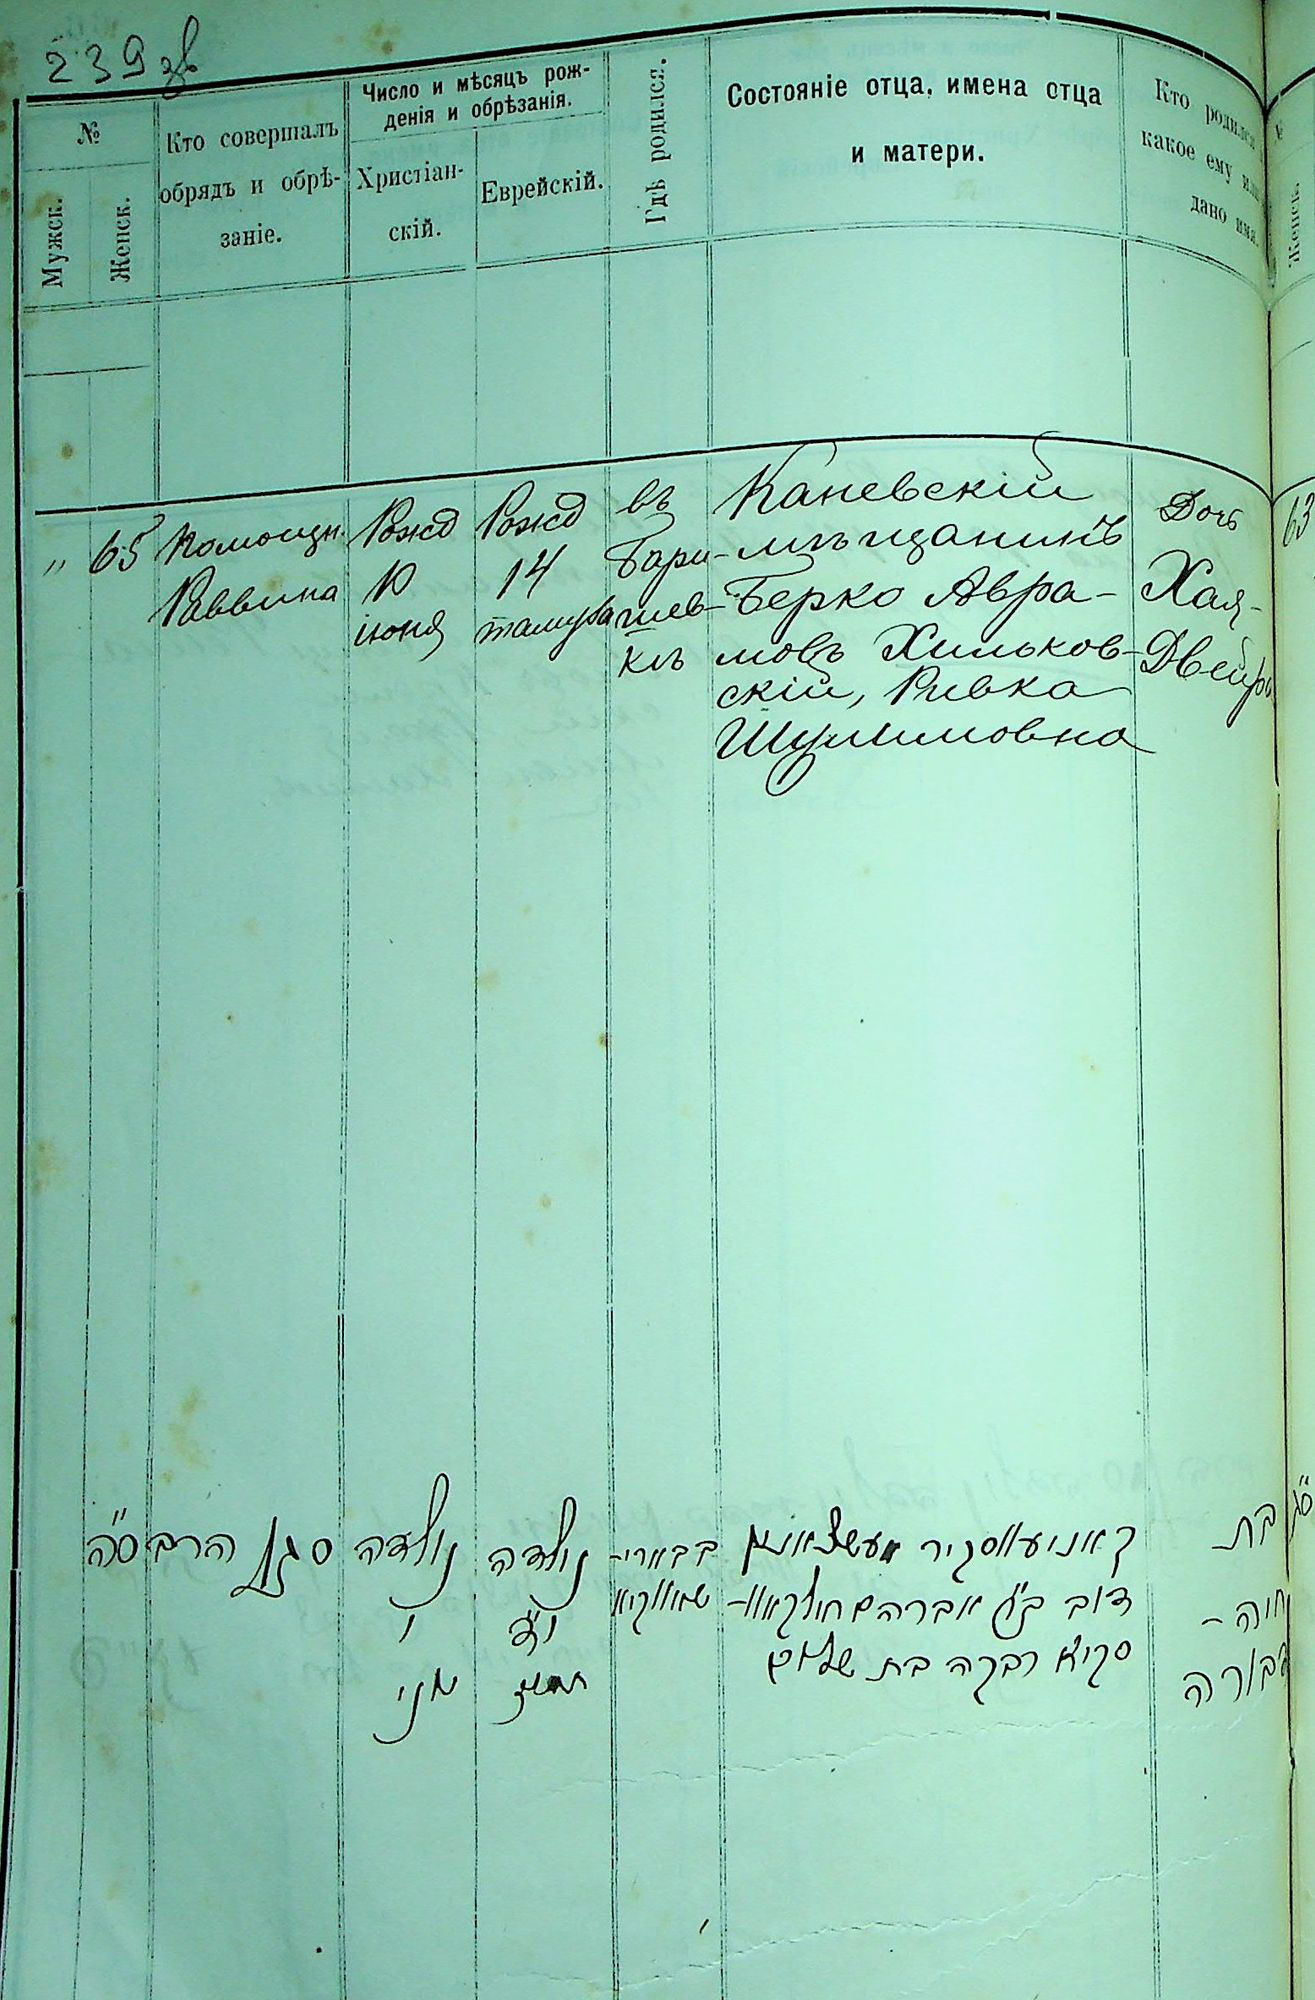 239 зв
№
Мужск.
Женск.
Кто совершалъ
обрядъ и обрѣ-
заніе.
Число и мѣсяцъ рож-
денія и обрѣзанія.
Христіан-
скій.
Еврейскій.
Гдѣ родился.
Состояніе отца, имена отца
и матери.
Кто родился
какое ему или
дано имя.
Женск.
" 65
Помощн.
Раввина
Рожд
10
іюня
Рожд
14
тамуза
въ
Бари-
шев-
кѣ
Каневскій
мѣщанинъ
Берко Авра-
мовъ Хильков-
скій, Ривка
Шулимовна
Дочь
Хая-
Двейра
63
ס"ה
סגן הרב
נולדה
י
יוני
נולדה
י"ד
תמוז
בבארי-
שאווקא
קאניעווסקיר מעשצאנין
דוב ב"ר אברהם חילקאוו-
סקי רבקה בת שלום
בת
חיה-
דבורה